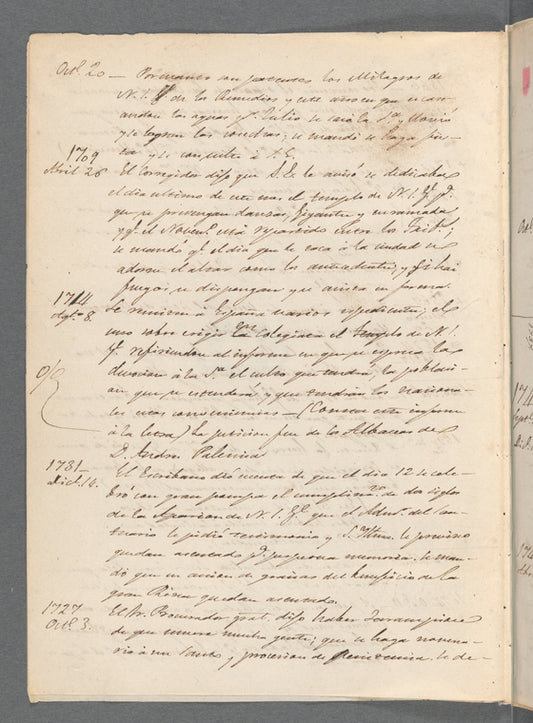 Oct.e 20 — Por cuanto son patentes los Milagros de
N. S. de los Remedios y este año en que
las aguas p.r Julio se sacó la S.a y llovió
y se logran los ; se mandó se haga
y se consulte á S. E.
1709
Abril 28
El Corregidor dijo que S. E. le avisó se dedicaba
el dia ultimo de este mes el templo de N. S. G. p.a
que se prevengan danzas, Gigantes y enramada
y q.e el Noven.o está repartido entre los Trib.s;
se mandó q.e el dia que le toca á la Ciudad se
adorne el altar como los antecedentes, y si hai
fuegos se dispongan y se avise en forma.
1714
Agto 8.
Se remiten á España varios expedientes; el
uno sobre erigir en Colegiata el templo de N. S.
G. refiriendo al informe en que se expresa la
devocion á la S.ra el culto que tendrá, la poblacion
que se estenderá y que tendrán los
en esta conveniencias — (Conosco este informe
á la letra) La peticion fue de los Albaceas de
D. Andres Palencia
1731—
Dic.e 16.
El Escribano dió cuenta de que el dia 12 se cele-
bró con gran pompa el cumplim.to de dos siglos
de la Aparicion de N. S. G. que el Adm.r del San-
tuario le pidió testimonio y S. Ilma. le previno
quedara asentado p.a perpetua memoria. Se man-
dó que en accion de gracias del beneficio de la
gran Reina quedara asentado.
1727
Oct.e 3.
El Sr. Procurador gral. dijo haber Sarampion
de que muere mucha gente; que se haga novena-
rio á un Santo, y procesion de Penitencia. Se de-